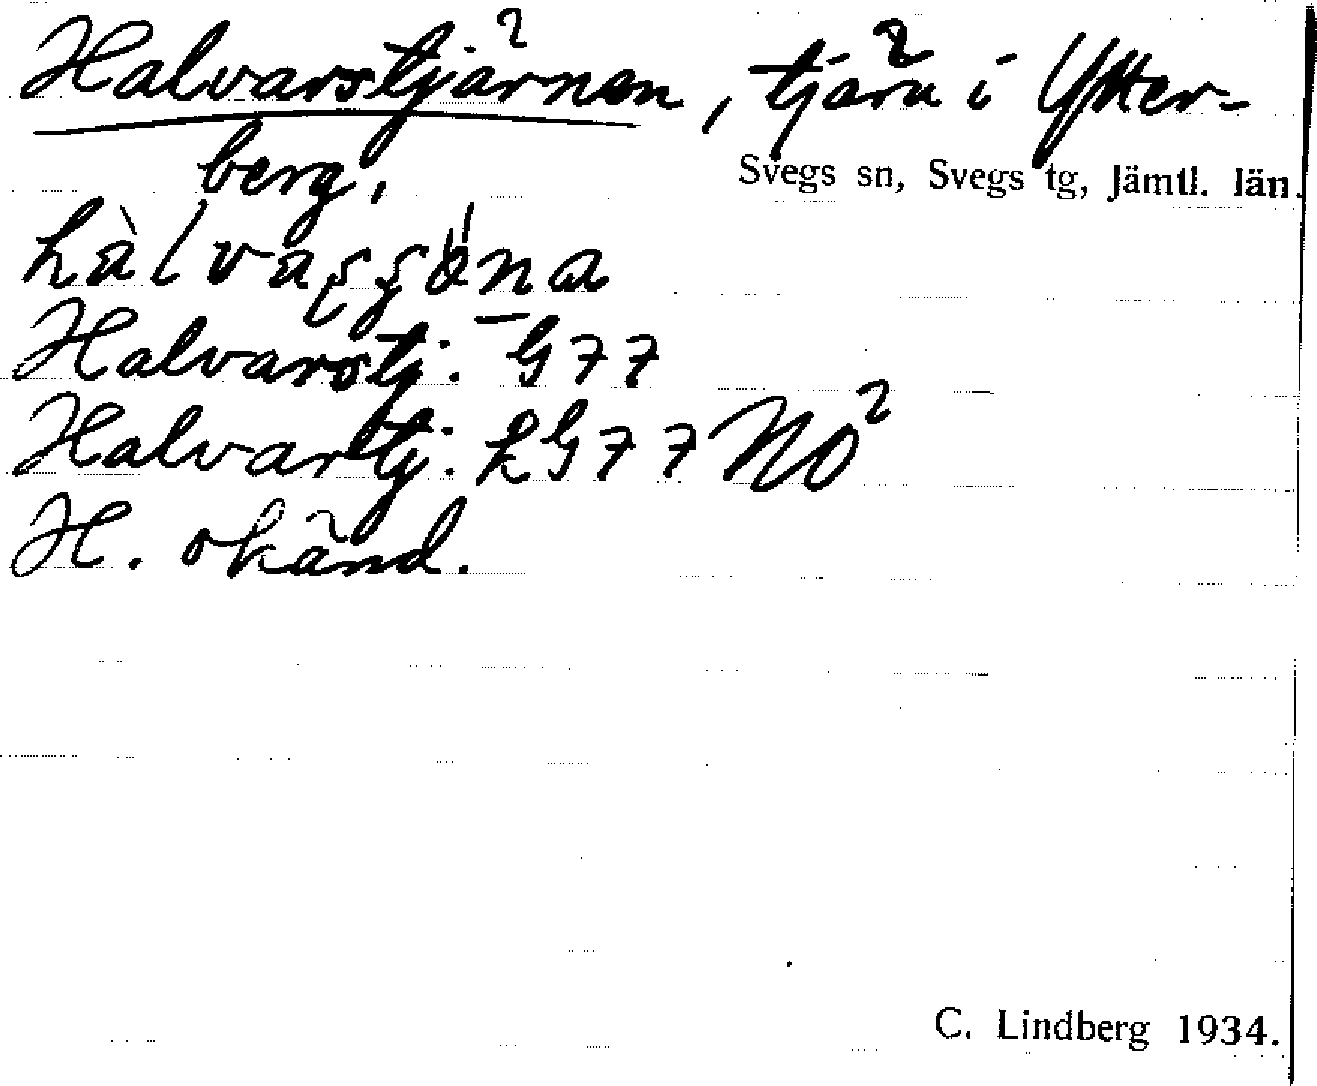 Halvarstjärnen, tjärn i Ytter-
berg,
Svegs sn, Svegs tg, Jämtl. län.
Halvarstj. G77
Halvartj. LG77 NO²
H. okänd.
C. Lindberg 1934.